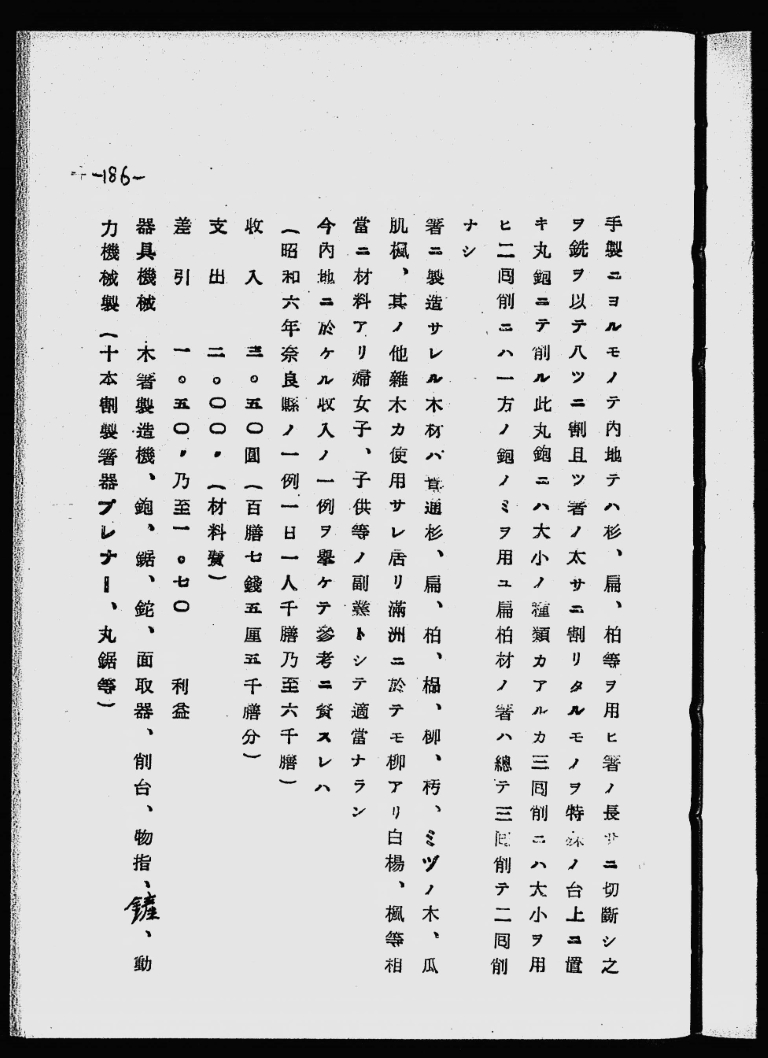 -186-
手製ニヨルモノテ內地テハ杉、扁、柏等ヲ用ヒ箸ノ長サニ切斷シ之
ヲ銑ヲ以テ八ツニ割且ツ箸ノ太サニ割リタルモノヲ特殊ノ台上ニ置
キ丸鉋ニテ削ル此丸鉋ニハ大小ノ種類カアルカ三囘削ニハ大小ヲ用
ヒ二囘削ニハ一方ノ鉋ノミヲ用ユ扁柏材ノ箸ハ總テ三囘削テ二囘削
ナシ
箸ニ製造サレル木材ハ普通杉、扁、柏、楊、柳、朽、ミヅノ木、瓜
肌楓、其ノ他雜木カ使用サレ居リ滿洲ニ於テモ柳アリ白楊、楓等相
當ニ材料アリ婦女子、子供等ノ副業トシテ適當ナラン
今內地ニ於ケル收入ノ一例ヲ擧ケテ參考ニ資スレハ
(昭和六年奈良縣ノ一例一日一人千膳乃至六千膳)
收入 三。五〇圓(百膳七錢五厘五千膳分)
支出 二。〇〇〃(材料費)
差引 一。五〇〃乃至一。七〇 利益
器具機械 木箸製造機、鉋、鋸、鉈、面取器、削台、物指、鏟、動
力機械製(十本割製箸器プレナー、丸鋸等)